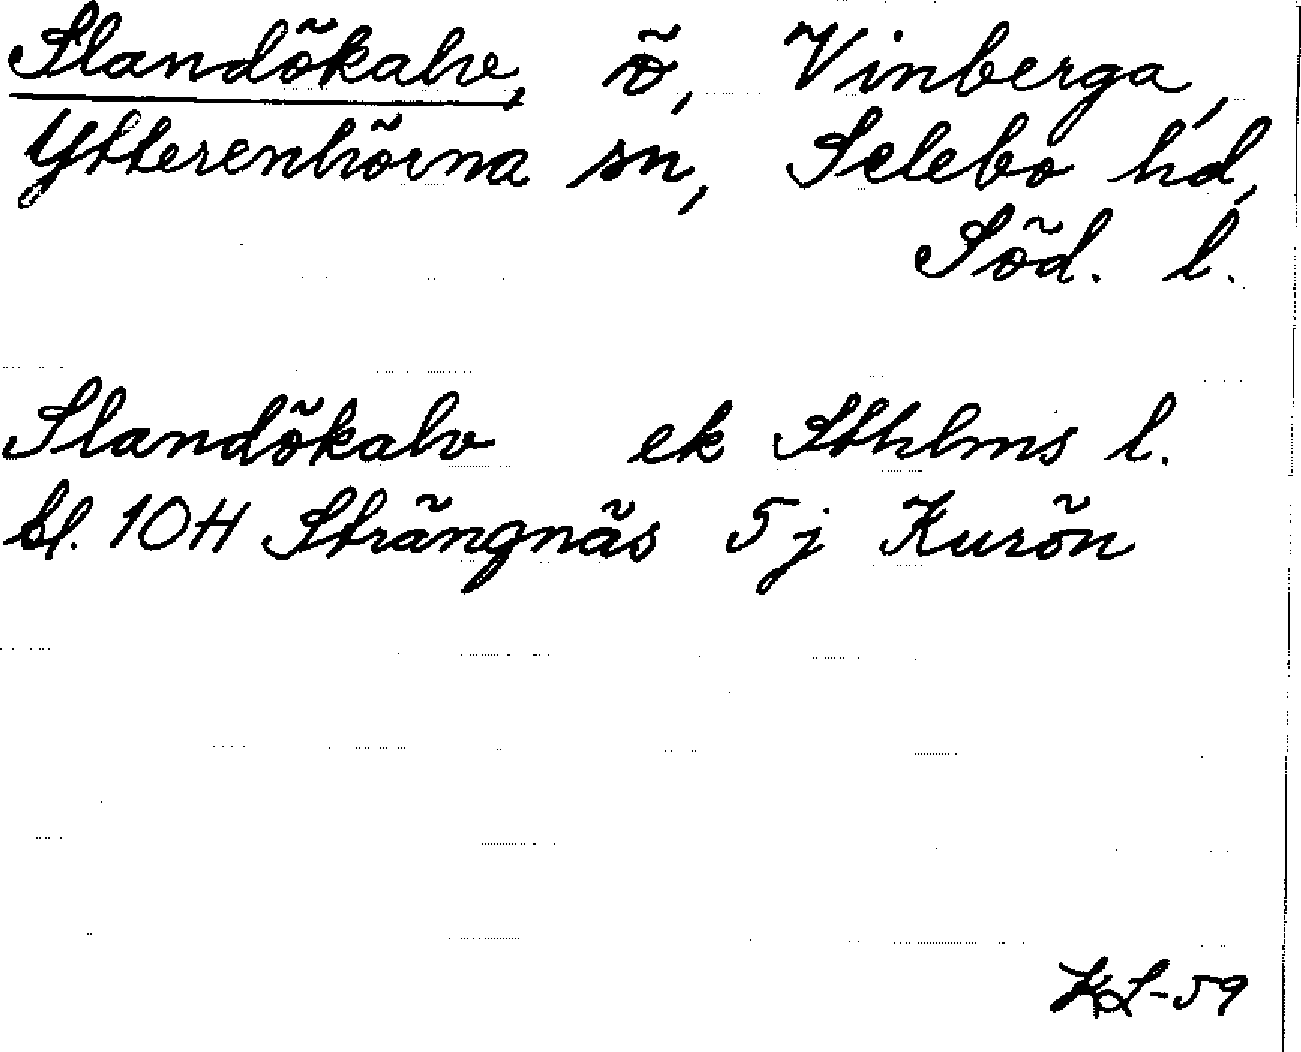 Slandökalv, ö, Vinberga,
Ytterenhörna sn, Selebo hd,
Söd. l.
Slandökalv ek Sthlms l.
bl. 10H Strängnäs 5j Kurön
KL-59